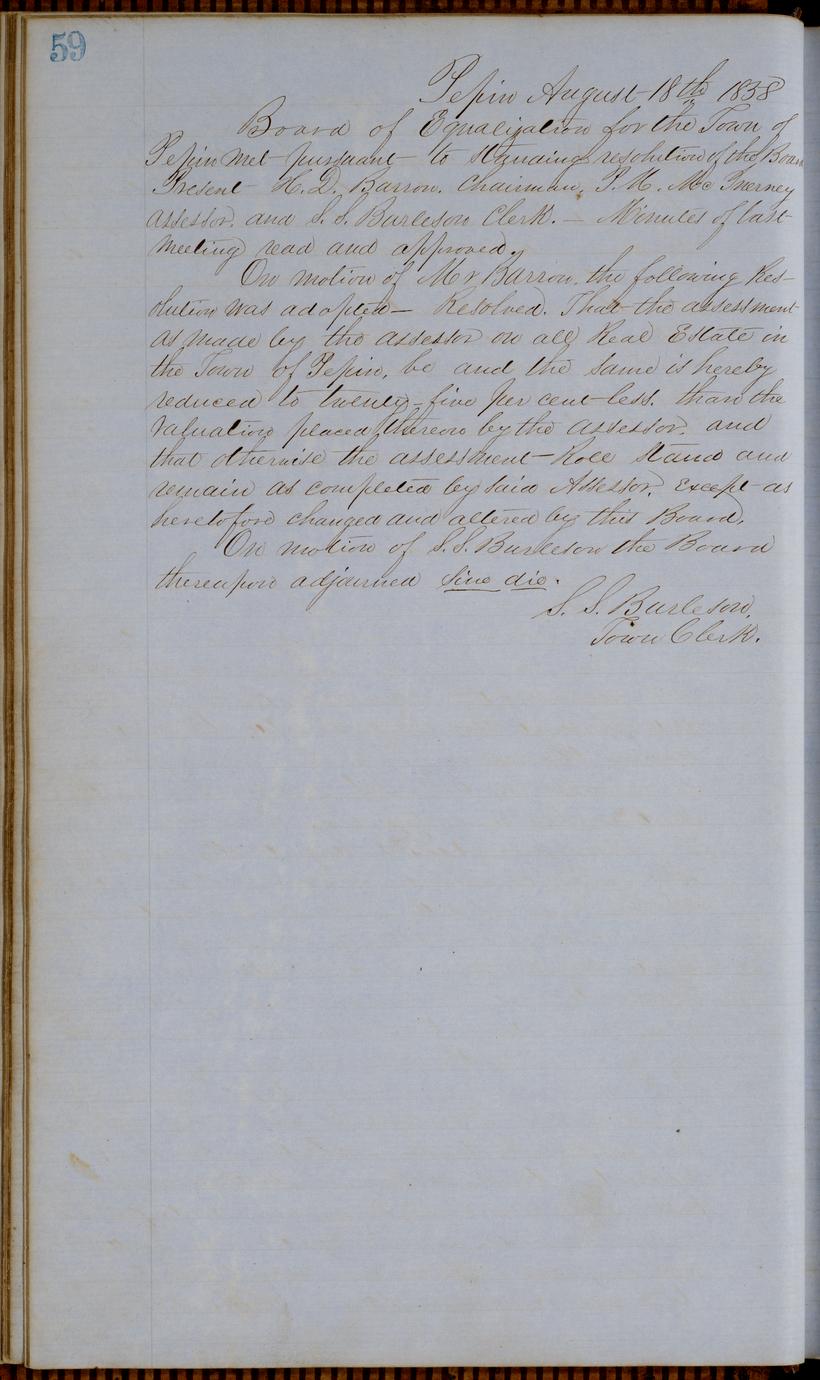 59
Pepin August 18th 1858
Board of Equalization for the Town of
Pepin met pursuant to standing resolution of the Board
Present H. D. Barron. Chairman, P. M. Mc Inerney
assessor. and S. S. Burleson Clerk. — Minutes of last
meeting read and approved.
On motion of Mr Barron, the following Res-
olution was adopted — Resolved. That the assessment
as made by the assessor on all Real Estate in
the Town of Pepin, be and the same is hereby
reduced to twenty-five per cent less. than the
valuation placed thereon by the assessor. and
that otherwise the assessment-Role stand and
remain as completed by said Assessor, except as
heretofore changed and altered by this Board.
On motion of S. S. Burleson the Board
thereupon adjourned sine die.
S. S. Burleson,
Town Clerk.